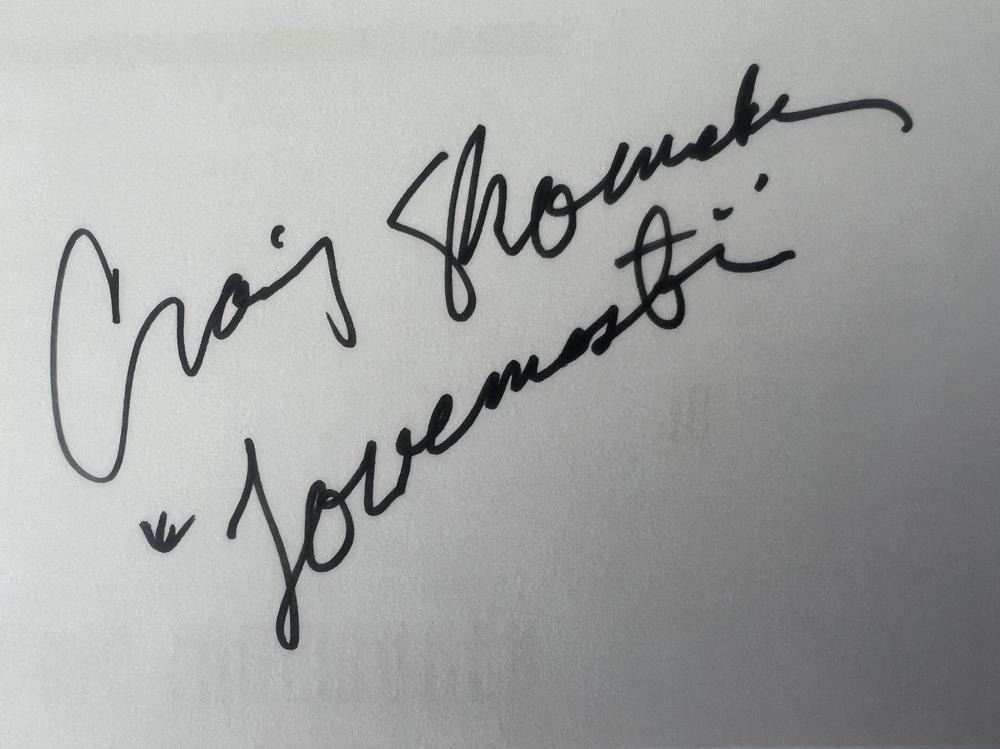 Craig Shoemaker
"Lovemaster"